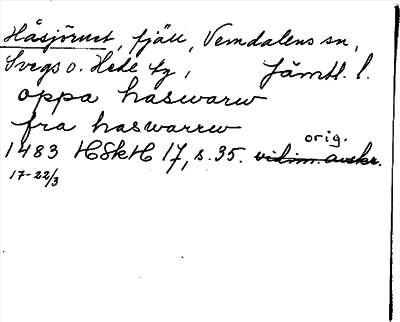 Håsjöruet, fjäll, Vemdalens sn,
Svegs o. Hede tg, Jämtl. l.
oppa haswarw
fra haswarrw
1483 HSkH 17, s. 35. vidim. avskr. orig.
17-22/3